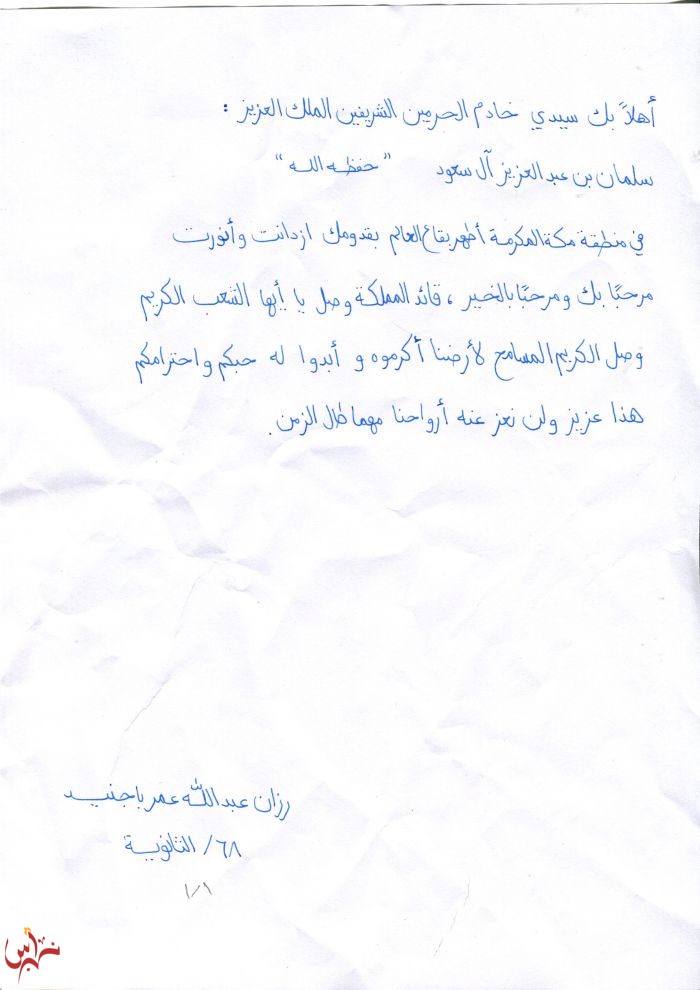 أهلاً بك سيدي خادم الحرمين الشريفين الملك العزيز :
سلمان بن عبد العزيز آل سعود " حفظه الله "
في منطقة مكة المكرمة أطهر بقاع العالم بقدومك ازدانت وأنورت
مرحبًا بك ومرحبًا بالخير ، قائد المملكة وصل يا أيها الشعب الكريم
وصل الكريم المسامح لأرضنا أكرموه و أبدوا له حبكم واحترامكم
هذا عزيز ولن نعز عنه أرواحنا مهما طال الزمن .
رزان عبد الله عمر باجنيد
٦٨/ الثانوية
١/١
نبراس